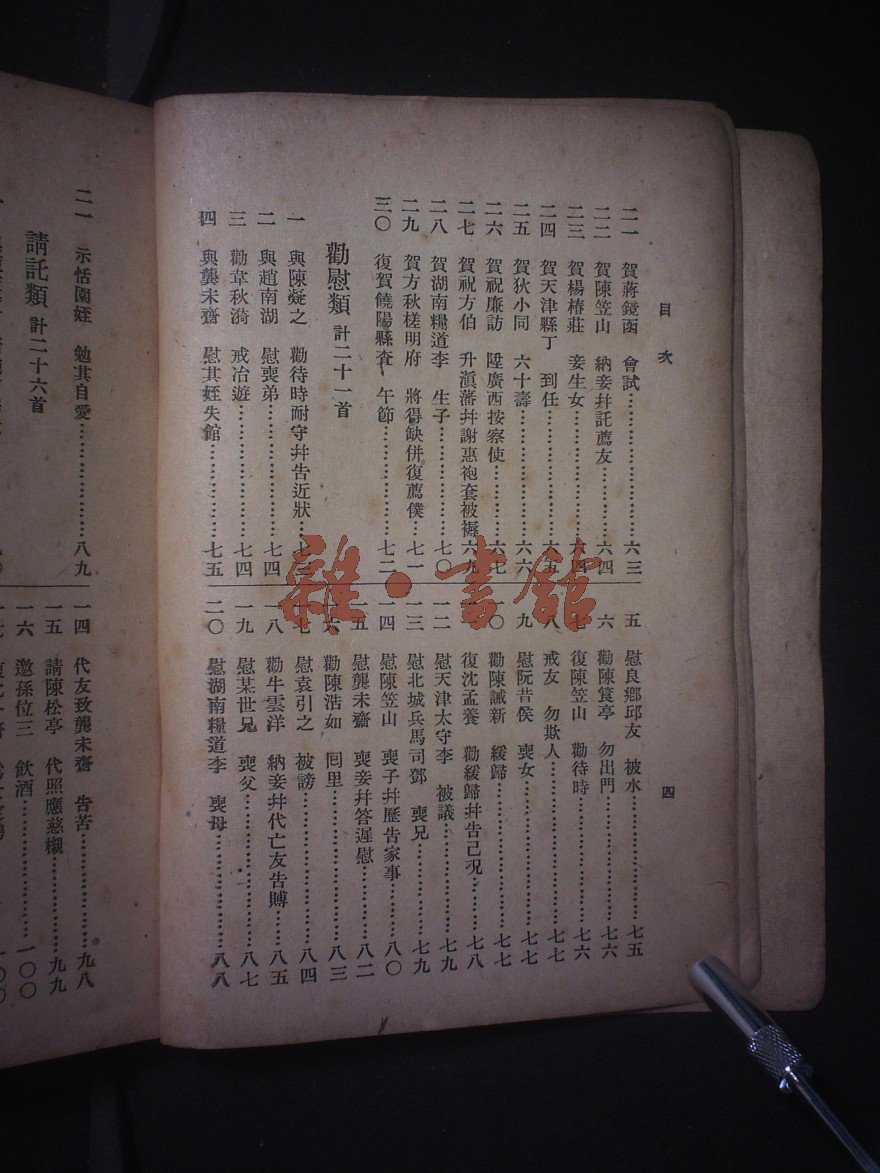 目次
四
二一 賀蔣鏡函 會試……六三
二二 賀陳笠山 納妾幷託薦友……六四
二三 賀楊椿莊 妾生女……六四
二四 賀天津縣丁 到任……六五
二五 賀狄小同 六十壽……六六
二六 賀祝廉訪 陞廣西按察使……六七
二七 賀祝方伯 升滇藩幷謝惠袍套被褥 六九
二八 賀湖南糧道李 生子……七〇
二九 賀方秋槎明府 將得缺併復薦僕……七一
三〇 復賀饒陽縣查 午節……七二
勸慰類 計二十一首
一 與陳凝之 勸待時耐守幷告近狀……七三
二 與趙南湖 慰喪弟……七四
三 勸韋秋漪 戒冶遊……七四
四 與龔未齋 慰其姪失館……七五
五 慰良鄉邱友 被水……七五
六 勸陳篔亭 勿出門……七六
七 復陳笠山 勸待時……七六
八 戒友 勿欺人……七七
九 慰阮昔侯 喪女……七七
一〇 勸陳誠新 緩歸……七七
復沈孟養 勸緩歸幷告己況……七八
一二 慰天津太守李 被議……七九
一三 慰北城兵馬司鄧 喪兄……七九
一四 慰陳笠山 喪子幷歷告家事……八〇
一五 慰龔未齋 喪妾幷答遲慰……八二
一六 勸陳浩如 回里……八三
一七 慰袁引之 被謗……八四
一八 勸牛雲洋 納妾幷代亡友告賻……八五
一九 慰某世兄 喪父……八七
二〇 慰湖南糧道李 喪母……八八
二一 示恬園姪 勉其自愛……八九
請託類 計二十六首
一四 代友致龔未齋 告苦……九八
一五 請陳松亭 代照應慈櫬……九九
一六 邀孫位三 飲酒……一〇〇
雜·書館